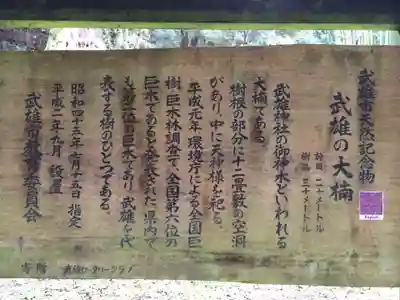 武雄市天然記念物
武雄の大楠
幹回 二十メートル
樹高 三十メートル
武雄神社の御神木といわれる
大楠である。
樹根の部分に十二畳敷の空洞
があり、中に天神様を祀る。
平成元年環境庁による全国巨
樹・巨木林調査で、全国第六位の
巨木であると発表された。県内で
も第二位の巨木であり、武雄を代
表する樹のひとつである。
昭和四十五年六月十五日 指定
平成二年九月 設置
武雄市教育委員会
寄贈 武雄ロータリークラブ
English